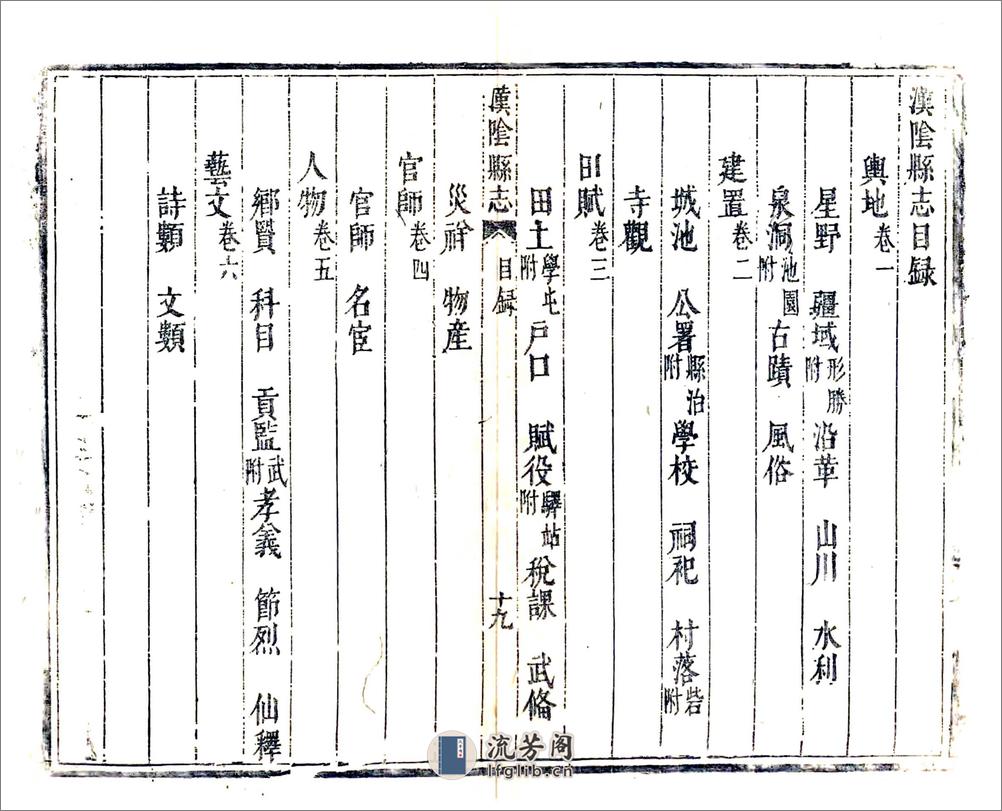 漢陰縣志目録
輿地卷一
星野 疆域形勝附 沿革 山川 水利
泉洞池園附 古蹟 風俗
建置卷二
城池 公署縣治附 學校 祠祀 村落砦附
寺觀
田賦卷三
田土學屯附 戸口 賦役驛站附 稅課 武俻
漢陰縣志 目録 十九
災祥 物産
官師卷四
官師 名宦
人物卷五
鄉賢 科目 貢監武附 孝義 節烈 仙釋
藝文卷六
詩類 文類
流芳阁
lfglib.cn